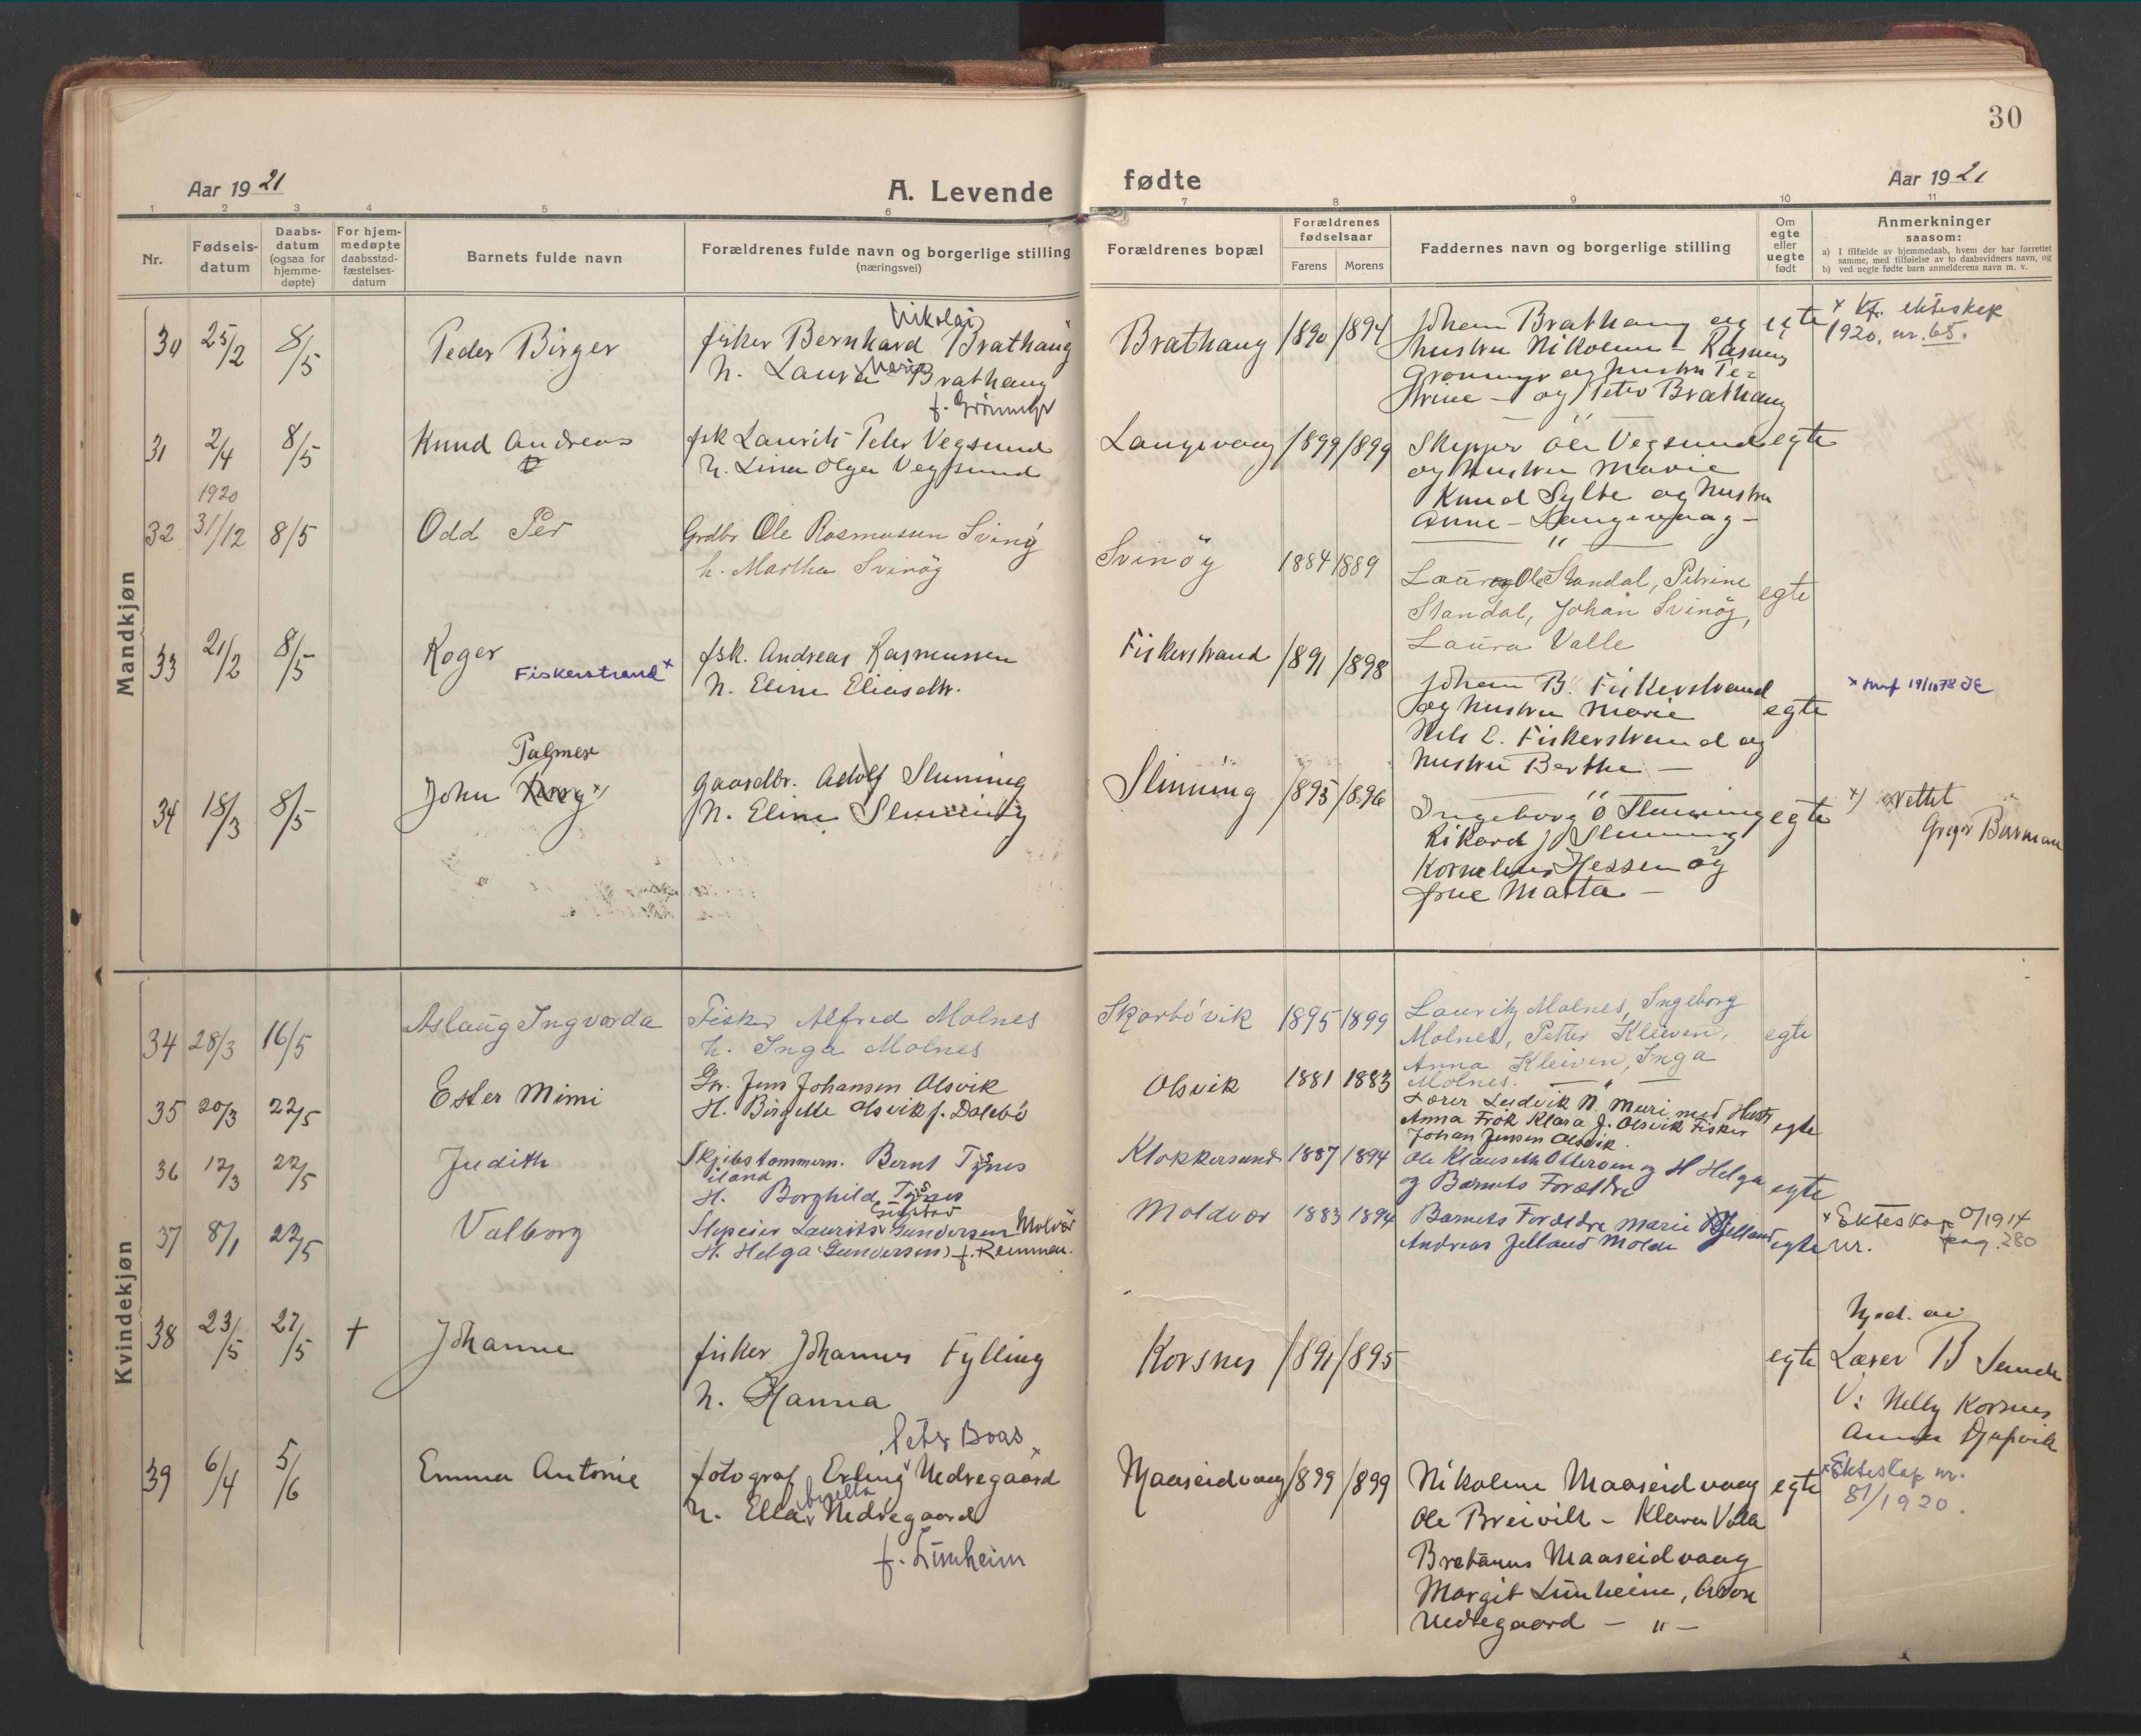 30
Aar 1921
A. Levende
fødte
Aar 1921
1 2 3 4 5 6 7 8 9 10 11
Nr.
Fødsels-
datum
Daabs-
datum
(ogsaa for
hjemme-
døpte)
For hjem-
medøpte
daabsstad-
fæstelses-
datum
Barnets fulde navn
Forældrenes fulde navn og borgerlige stilling
(næringsvei)
Forældrenes bopæl
Forældrenes
fødselsaar
Farens Morens
Faddernes navn og borgerlige stilling
Om
egte
eller
uegte
født
Anmerkninger
saasom:
a) I tilfælde av hjemmedaab, hvem der har forrettet
samme, med tilføielse av to daabsvidners navn, og
b) ved uegte fødte barn anmelderens navn m. v.
Mandkjøn
30 25/2 8/5 Peder Birger
Nikolai
fisker Bernhard Brathaug
Maria
h. Laura Brathaug
f. Grönmyr
Brathaug 1890 1894
Johan Brathaug og
hustru Nikoline - Rasmus
Grönmyr og hustru Pe-
trine - og Peter Brathaug
egte
x Kfr. ekteskap
1920, nr. 65.
31 2/4 8/5 Knud Andreas
fsk Laurits Peter Vegsund
h. Lina Olga Vegsund
Langevaag 1899 1899
Skipper Ole Vegsund
og hustru Marie
Knud Sylte og hustru
Anne - Langevaag -
egte
1920
32 31/12 8/5 Odd Per
Grdbr Ole Rasmussen Svinö
h. Martha Svinöy
Svinöy 1884 1889
Laura og Ole Standal, Petrine
Standal, Johan Svinöy,
Laura Valle
egte
33 21/2 8/5 Roger
Fiskerstrand x
fsk. Andreas Rasmussen
h. Eline Eliasdtr.
Fiskerstrand 1891 1898
Johan B. Fiskerstrand
og hustru Marie
Nils E. Fiskerstrand og
hustru Berthe -
egte
x 19/10 78
34 18/3 8/5
Palmer
John x)
gaardbr. Adolf Slinning
h. Eline Slinning
Slinning 1895 1896
Ingeborg O Slinning
Rikard J Slinning
Kornelius Hessen og
frue Marta -
egte
x) rettet
Greger Burman
Kvindekjøn
34 28/3 16/5 Aslaug Ingvarda
Fisker Alfred Molnes
h. Inga Molnes
Skarbövik 1895 1899
Lauritz Molnes, Ingeborg
Molnes, Petter Kleiven,
Anna Kleiven, Inga
Molnes.
egte
35 20/3 22/5 Ester Mimi
Gr. Jens Johansen Olsvik
H. Birgitte Olsvik f. Dalebö
Olsvik 1881 1883
Lærer Ludvik N. Muri med Hustr
Anna Frök Klara J. Olsvik Fisker
Johan Jensen Olsvik.
egte
36 12/3 22/5 Judith
Skjibstömmerm. Bernt Tysnes
iland
H. Borghild Tysnes
Klokkersund 1887 1894
Ole Klauseth Otteröen og H Helga
og Barnets Forældre
egte
37 8/1 22/5 Valborg
Gustav
Slepeier Laurits Gundersen Molvær
H. Helga (Gundersen) f. Remmen.
Moldvær 1883 1894
Barnets Forældre Marie Jelland
Andreas Jelland Molde
egte
x Ekteskap 0/1914
nr. pag. 280
38 23/5 27/5 † Johanne
fisker Johannes Fylling
h. Hanna
Korsnes 1891 1895
egte
hjd. av
Lærer B Sunde
V: Nelly Korsnes
Anna Djupvik
39 6/4 5/6 Emma Antonie
Peter Boas x
fotograf Erling Nedregaard
h. Ella Nedregaard
f. Limheim
Maaseidvaag 1899 1899
Nikoline Maaseidvaag
Ole Breivik - Klara Valle
Bretanus Maaseidvaag
Margit Limheim, Aron
Nedregaard - " -
egte
x Ekteskap nr.
81/1920.